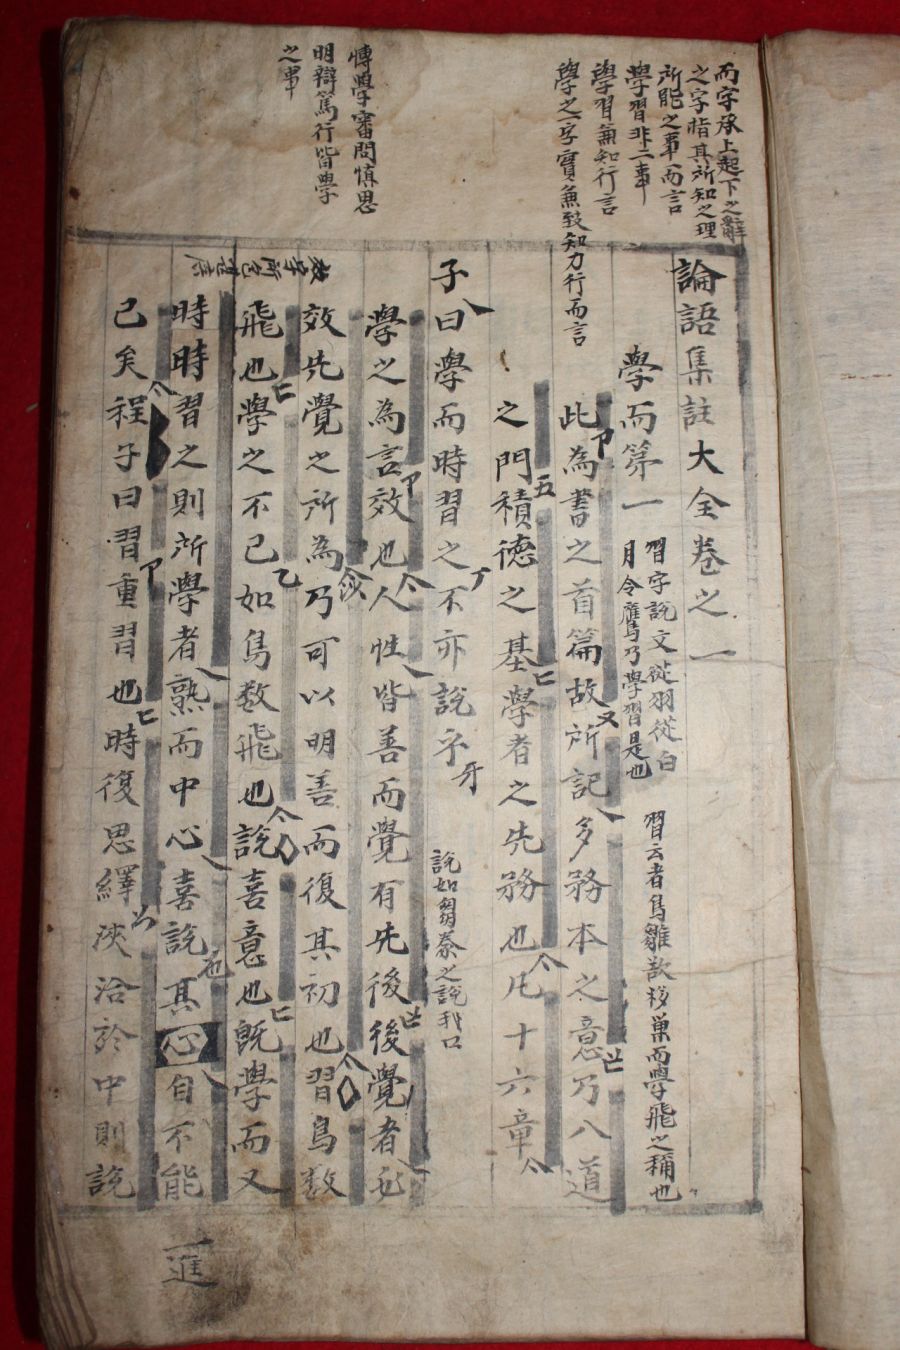 而字承上起下之辭
之字指其所知之理
所能之事而言
學習非二事
學習兼知行言
學之字實兼致知力行而言
博學審問愼思
明辯篤行皆學
之事
論語集註大全卷之一
學而第一
習字說文從羽從白
月令鷹乃學習是也
習云者鳥雛欲移巢而學飛之稱也
此為書之首篇故所記多務本之意乃入道
之門積德之基學者之先務也凡十六章
子曰學而時習之不亦說乎
說如芻豢之說我口
學之為言效也人性皆善而覺有先後後覺者必
效先覺之所為乃可以明善而復其初也習鳥數
飛也學之不已如鳥數飛也說喜意也旣學而又
時時習之則所學者熟而中心喜說其心自不能
已矣程子曰習重習也時復思繹浹洽於中則說
進